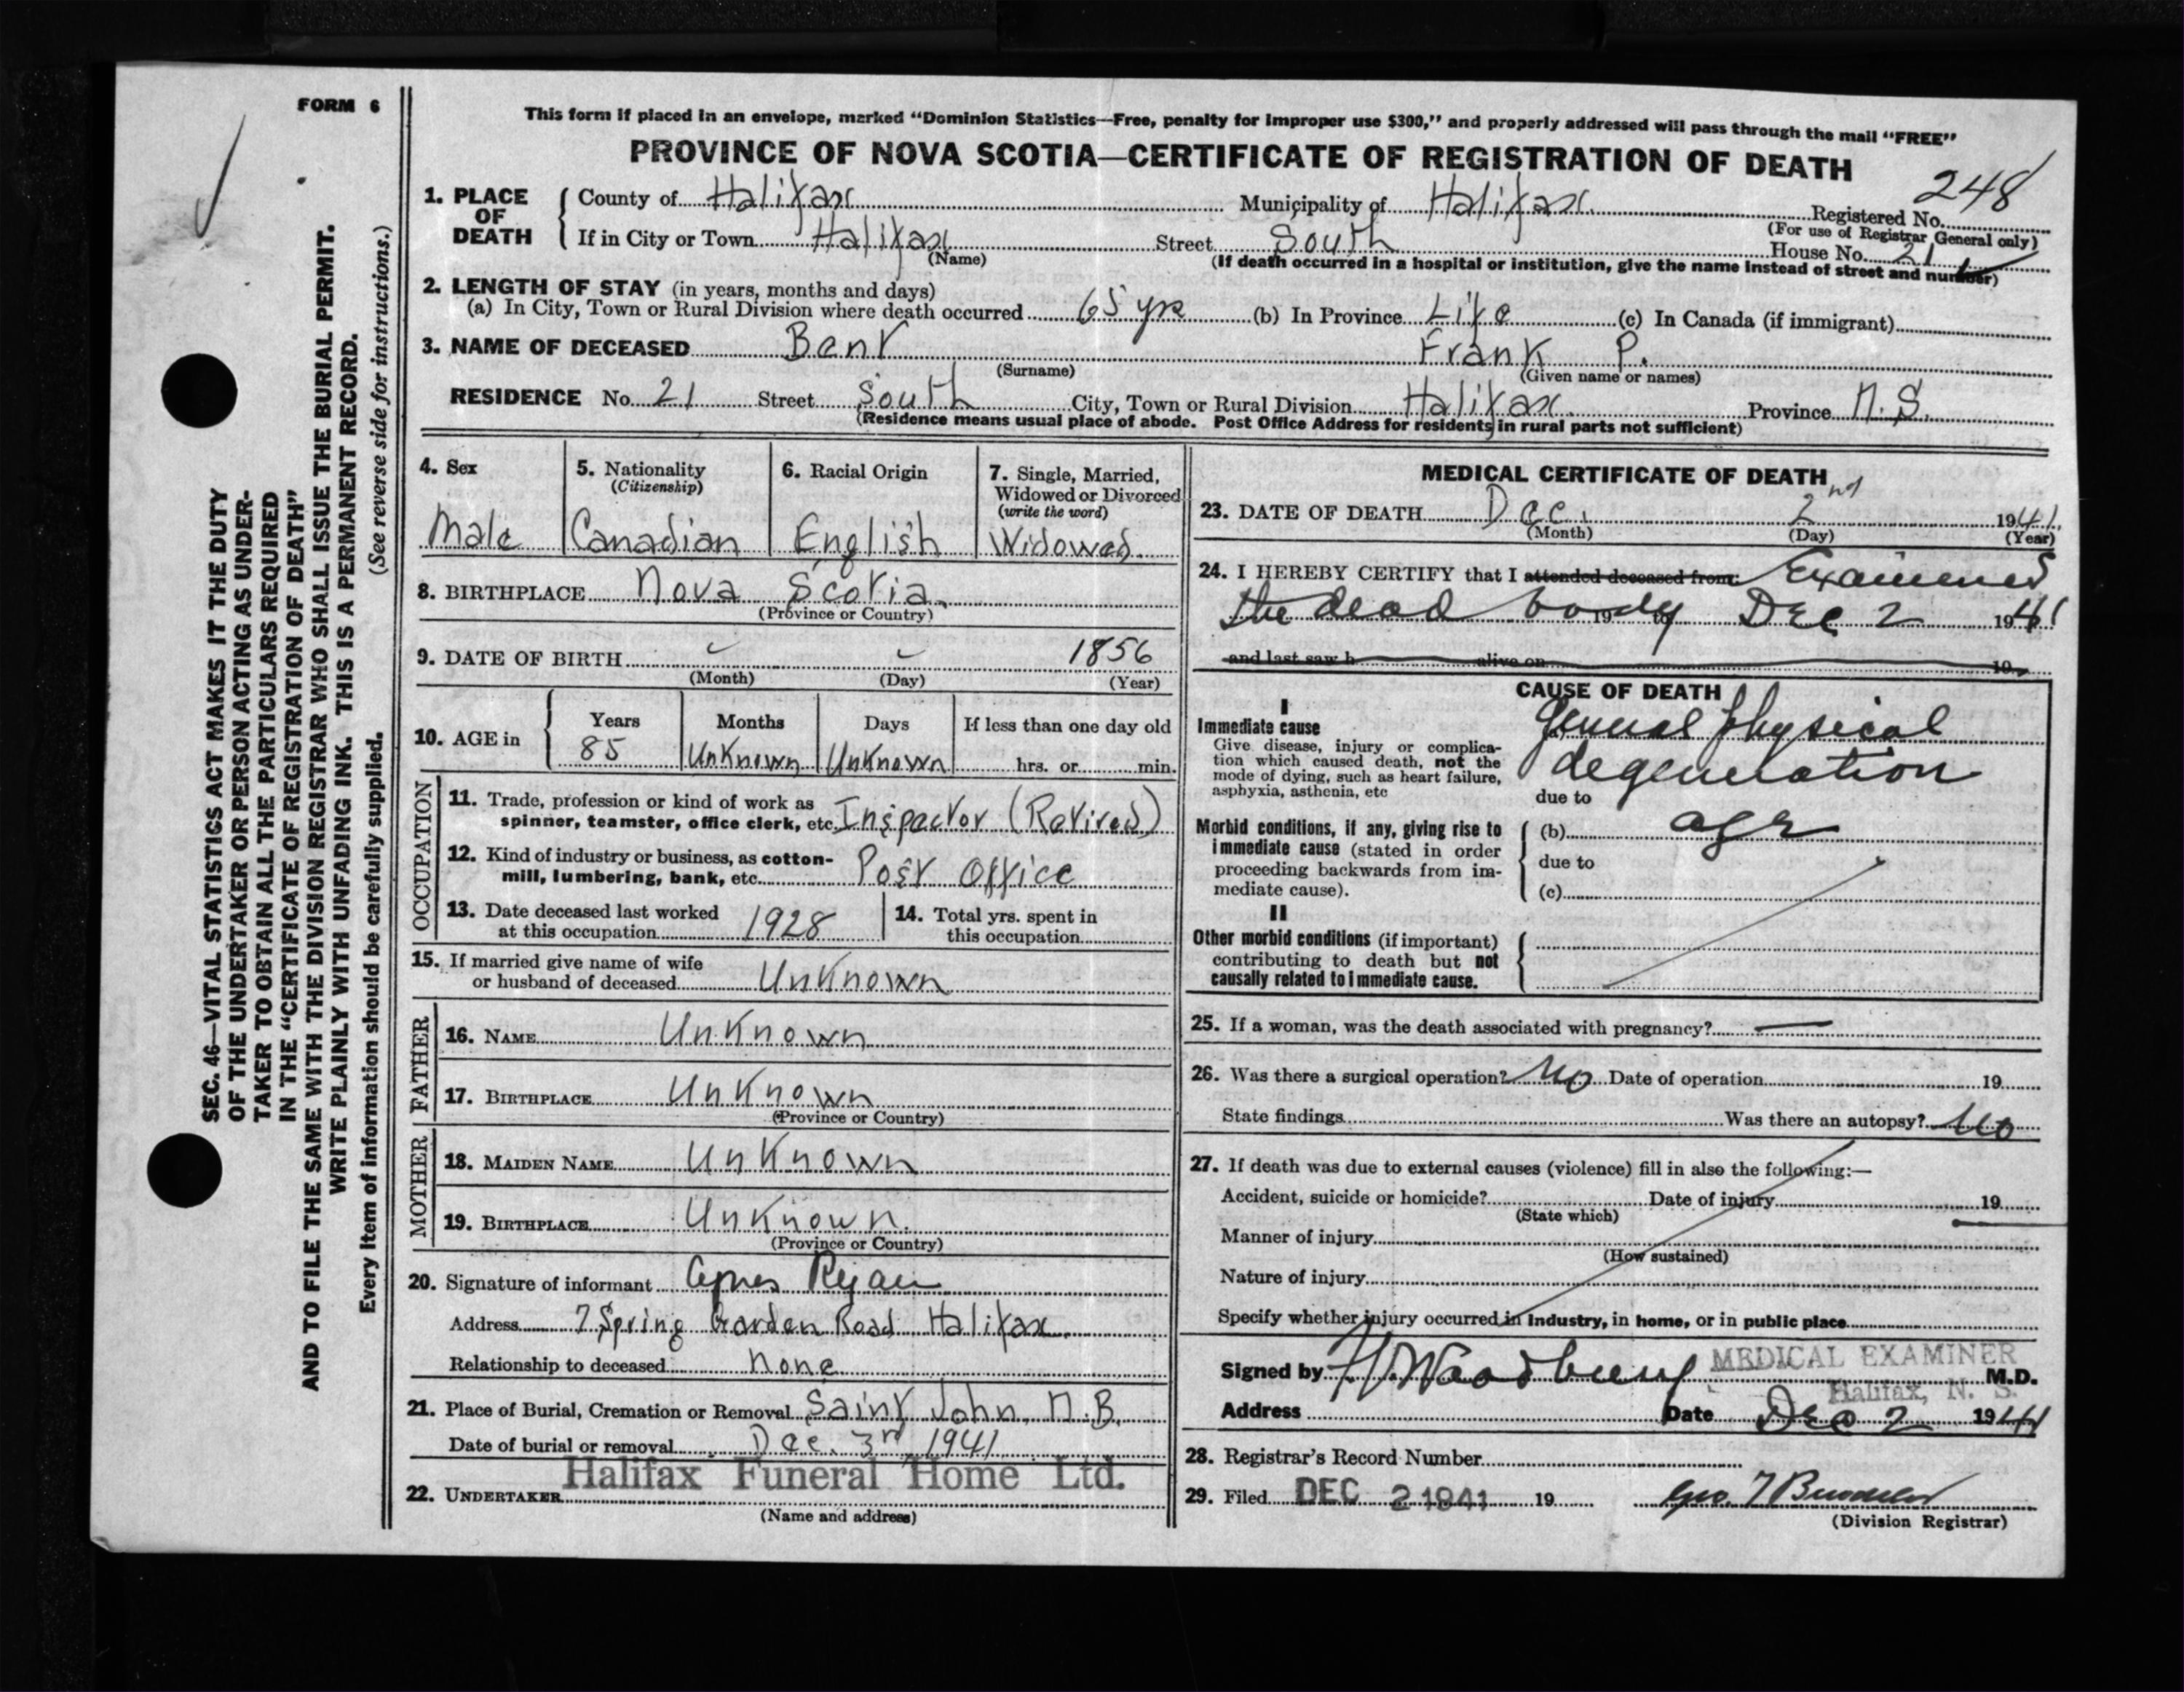 FORM 6
SEC. 46—VITAL STATISTICS ACT MAKES IT THE DUTY
OF THE UNDERTAKER OR PERSON ACTING AS UNDER-
TAKER TO OBTAIN ALL THE PARTICULARS REQUIRED
IN THE "CERTIFICATE OF REGISTRATION OF DEATH"
AND TO FILE THE SAME WITH THE DIVISION REGISTRAR WHO SHALL ISSUE THE BURIAL PERMIT.
WRITE PLAINLY WITH UNFADING INK. THIS IS A PERMANENT RECORD.
Every item of information should be carefully supplied. (See reverse side for instructions.)
This form if placed in an envelope, marked "Dominion Statistics—Free, penalty for improper use $300," and properly addressed will pass through the mail "FREE"
PROVINCE OF NOVA SCOTIA—CERTIFICATE OF REGISTRATION OF DEATH
248
1. PLACE OF DEATH County of Halifax Municipality of Halifax Registered No.
(For use of Registrar General only)
If in City or Town Halifax Street South House No. 21
(Name) (If death occurred in a hospital or institution, give the name instead of street and number)
2. LENGTH OF STAY (in years, months and days)
(a) In City, Town or Rural Division where death occurred 65 yrs (b) In Province Life (c) In Canada (if immigrant)
3. NAME OF DECEASED Bent Frank P.
(Surname) (Given name or names)
RESIDENCE No. 21 Street South City, Town or Rural Division Halifax Province N.S.
(Residence means usual place of abode. Post Office Address for residents in rural parts not sufficient)
4. Sex
Male
5. Nationality
(Citizenship)
Canadian
6. Racial Origin
English
7. Single, Married,
Widowed or Divorced
(write the word)
Widowed.
8. BIRTHPLACE Nova Scotia.
(Province or Country)
9. DATE OF BIRTH 1856
(Month) (Day) (Year)
10. AGE in
Years Months Days If less than one day old
85 Unknown Unknown hrs. or min.
OCCUPATION
11. Trade, profession or kind of work as
spinner, teamster, office clerk, etc. Inspector (Retired)
12. Kind of industry or business, as cotton-
mill, lumbering, bank, etc. Post Office
13. Date deceased last worked
at this occupation 1928
14. Total yrs. spent in
this occupation
15. If married give name of wife
or husband of deceased Unknown
FATHER
16. NAME Unknown
17. BIRTHPLACE Unknown
(Province or Country)
MOTHER
18. MAIDEN NAME Unknown
19. BIRTHPLACE Unknown.
(Province or Country)
20. Signature of informant Agnes Ryan
Address 7 Spring Garden Road Halifax.
Relationship to deceased None
21. Place of Burial, Cremation or Removal Saint John, N.B.
Date of burial or removal Dec. 3rd, 1941
Halifax Funeral Home Ltd.
22. UNDERTAKER
(Name and address)
MEDICAL CERTIFICATE OF DEATH
23. DATE OF DEATH Dec. 2nd 1941.
(Month) (Day) (Year)
24. I HEREBY CERTIFY that I attended deceased from: Examined
the dead body 19 to Dec 2 1941
and last saw h alive on 19
CAUSE OF DEATH
I
Immediate cause
Give disease, injury or complica-
tion which caused death, not the
mode of dying, such as heart failure,
asphyxia, asthenia, etc
General physical
degeneration
due to
Morbid conditions, if any, giving rise to
immediate cause (stated in order
proceeding backwards from im-
mediate cause).
(b) age
due to
(c)
II
Other morbid conditions (if important)
contributing to death but not
causally related to immediate cause.
25. If a woman, was the death associated with pregnancy? —
26. Was there a surgical operation? No Date of operation 19
State findings Was there an autopsy? No
27. If death was due to external causes (violence) fill in also the following:—
Accident, suicide or homicide? Date of injury 19
(State which)
Manner of injury
(How sustained)
Nature of injury
Specify whether injury occurred in industry, in home, or in public place
Signed by Woodbury MEDICAL EXAMINER M.D.
Halifax, N. S.
Address Date Dec 2 1941
28. Registrar's Record Number
29. Filed DEC 2 1941 19 Geo.
(Division Registrar)